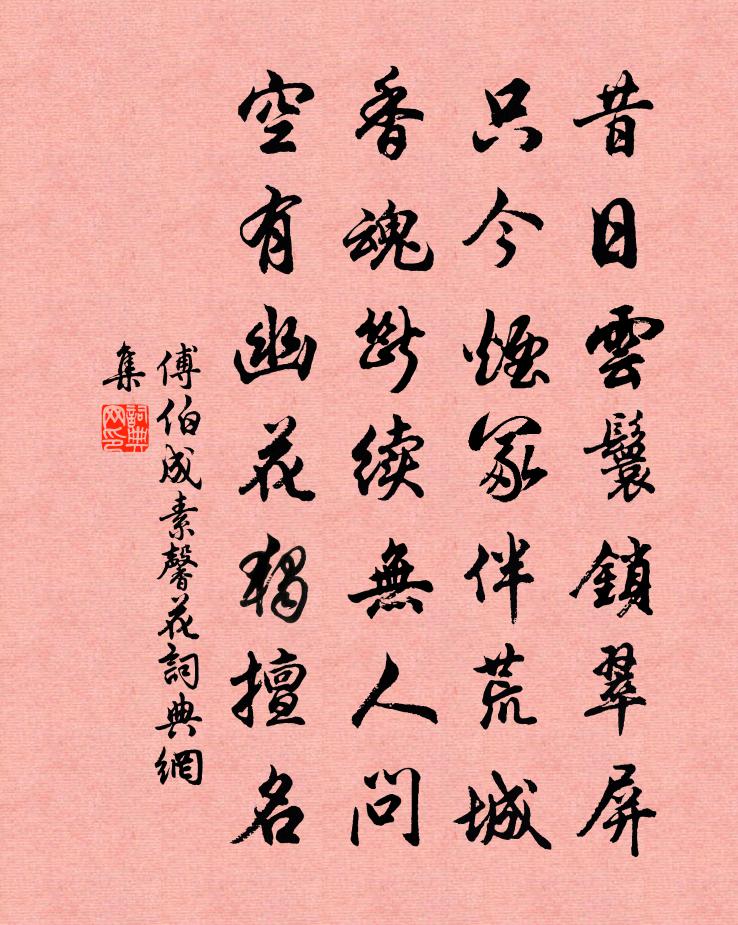 昔日雲鬟鎖翠屏
只今煙冢伴荒城
香魂斷续無人問
空有幽花獨擅名
傅伯成素馨花詞典網
集
詞典網印